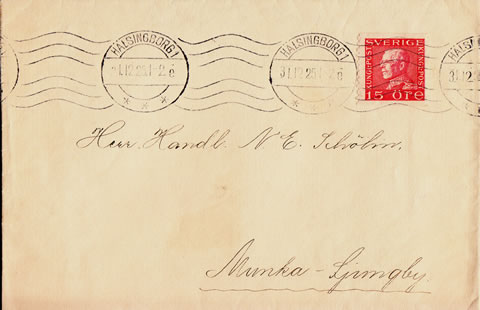 HÄLSINGBORG 1
31.12.25 1-2 e
HÄLSINGBORG 1
31.12.25 1-2 e
HÄLS
31.12
KUNGL. POST SVERIGE KUNGL. POST
15 ÖRE
Herr Handl. N E. Schölin,
Munka-Ljungby.